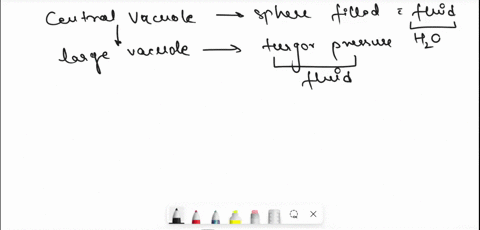 Central vacuole → sphere filled c̄ fluid
H2O
large vacuole → turgor pressure
fluid